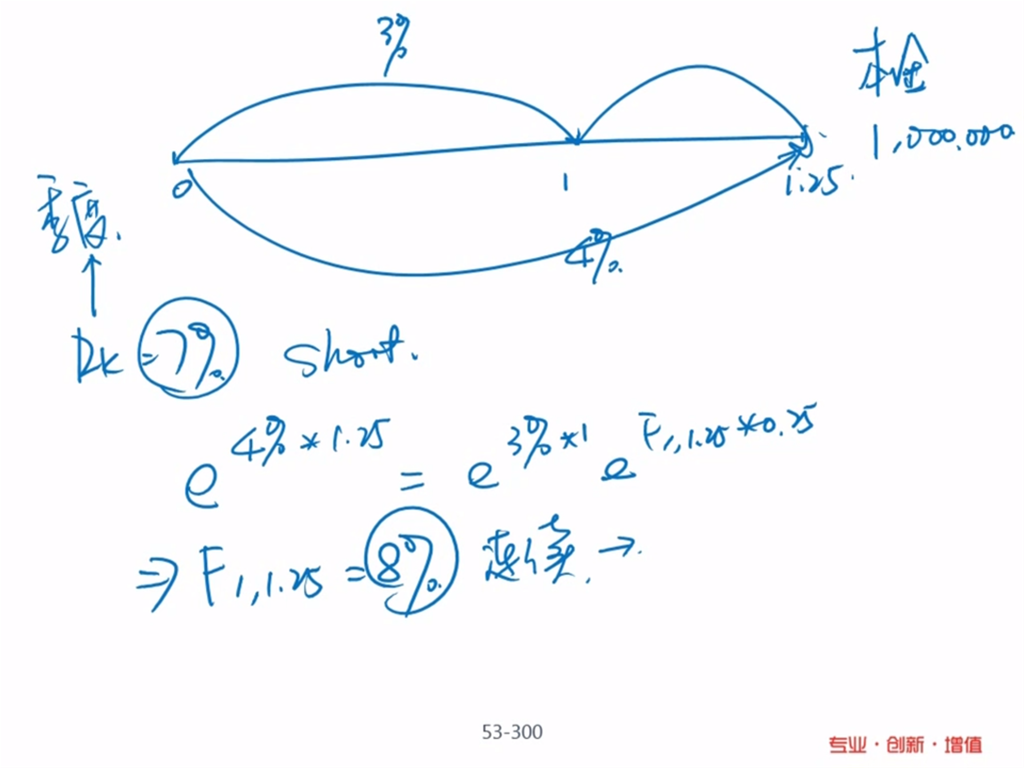 3%
本金
1,000.000
0
1
1.25.
季度.
4%.
RK = 7% short.
e^4%*1.25 = e^3%*1 e^F1,1.25*0.25
⇒ F1,1.25 = 8% 连续. →
53-300
专业·创新·增值